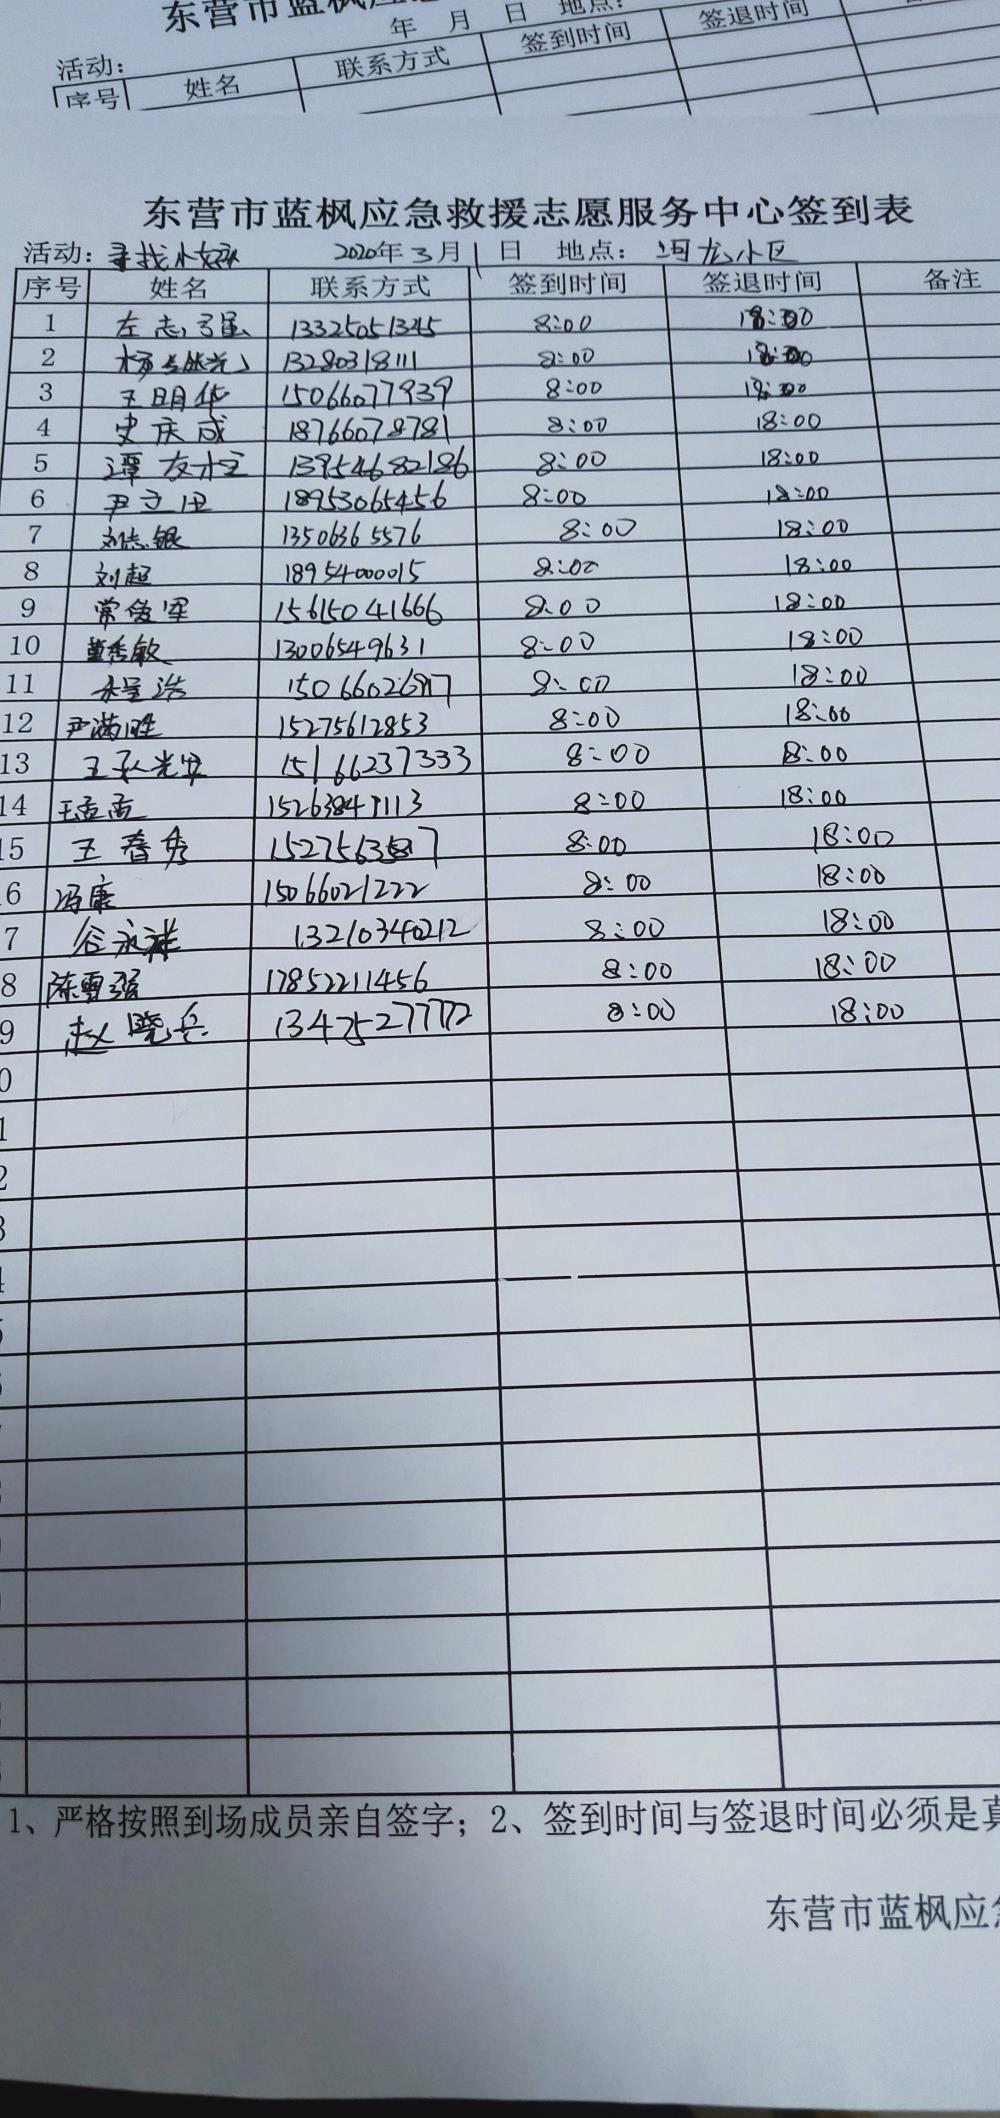 东营市蓝枫应急
年 月 日 地点:
活动:
序号 姓名 联系方式 签到时间 签退时间
东营市蓝枫应急救援志愿服务中心签到表
活动: 寻找小女孩 2020年3月1日 地点: 河龙小区
序号 姓名 联系方式 签到时间 签退时间 备注
1 左志强 13325051345 8:00 18:00
2 13280318111 8:00 18:00
3 王明华 15066077939 8:00 18:00
4 史庆成 18766078781 8:00 18:00
5 谭友水 13954682186 8:00 18:00
6 尹立卫 18953065456 8:00 18:00
7 刘志银 13506365576 8:00 18:00
8 刘超 18954000015 8:00 18:00
9 常俊军 15615041666 8:00 18:00
10 董秀敏 13006549631 8:00 18:00
11 浩 8:00 18:00
12 尹满胜 15275612853 8:00 18:00
13 15166237333 8:00 18:00
14 王孟 15263847113 8:00 18:00
15 王春秀 8:00 18:00
6 冯康 15066021222 8:00 18:00
7 谷永祥 13210340212 8:00 18:00
8 陈雪强 17852211456 8:00 18:00
9 赵晓兵 13475277772 8:00 18:00
0
1
2
3
4
5
1、严格按照到场成员亲自签字；2、签到时间与签退时间必须是真
东营市蓝枫应急